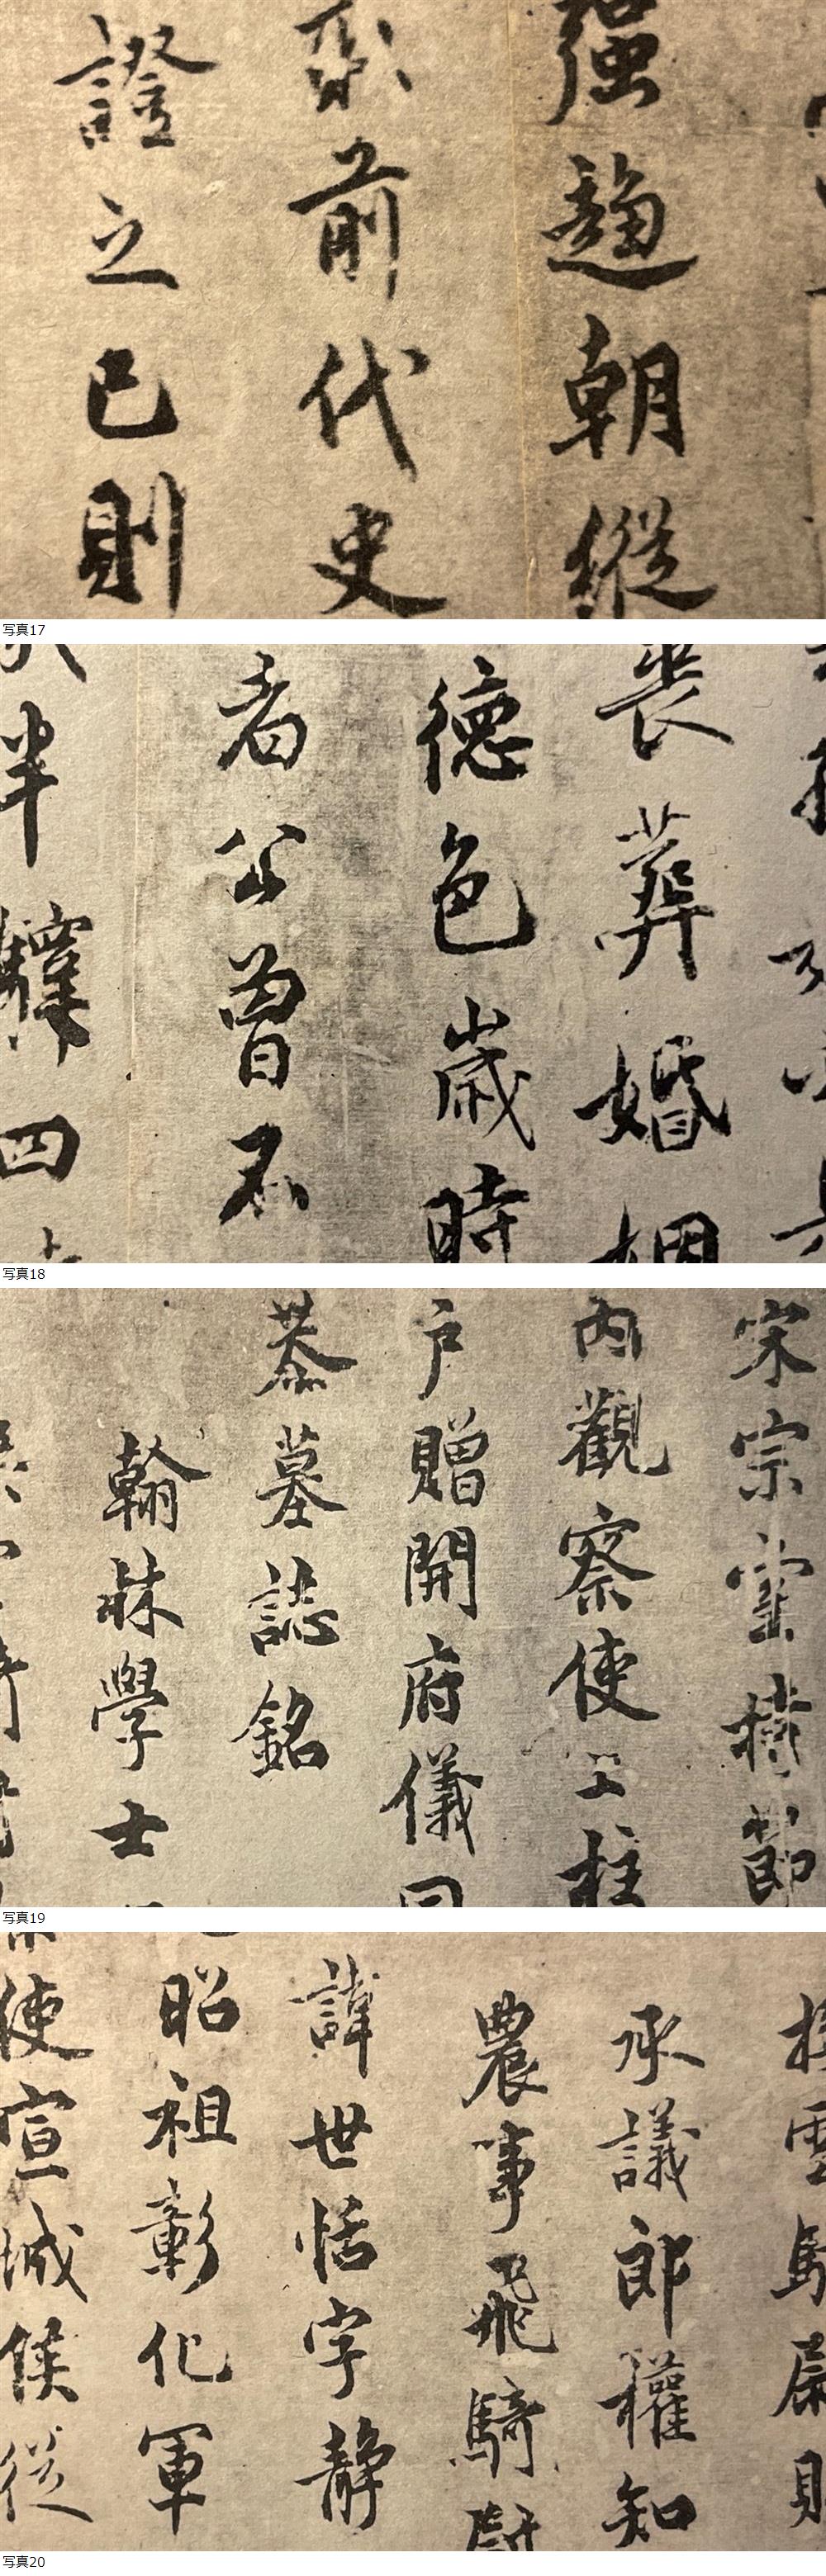 强趨朝縱
前代史
證之已則
写真17
喪葬婚姻
德色歲時
者公曾不
半驛四
写真18
宋宗室持節
内觀察使上柱
户贈開府儀同
墓誌銘
翰林學士
写真19
承議郎權知
農事飛騎尉
諱世恬字静
昭祖彰化軍
使宣城侯從
写真20